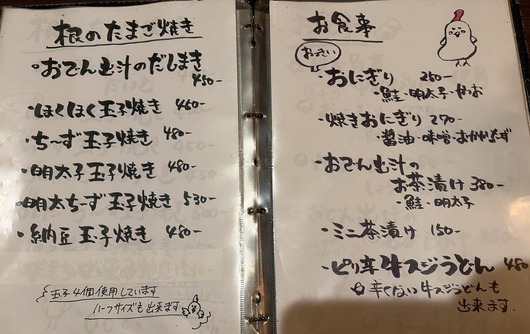 根のたまご焼き
・おでん出汁のだしまき
450-
・ほくほく玉子焼き 450-
・ち～ず玉子焼き 480-
・明太子玉子焼き 480-
・明太ち～ず玉子焼き 530-
・納豆玉子焼き 480-
玉子4個使用しています
ハーフサイズも出来ます
お食事
おっきい
・おにぎり 250-
・鮭・明太子・かお
・焼きおにぎり 270-
醤油・味噌・おかかちーず
・おでん出汁の
お茶漬け 380-
・鮭・明太子
・ミニ茶漬け 150-
・ピリ辛牛スジうどん 480
辛くない牛スジうどんも
出来ます。